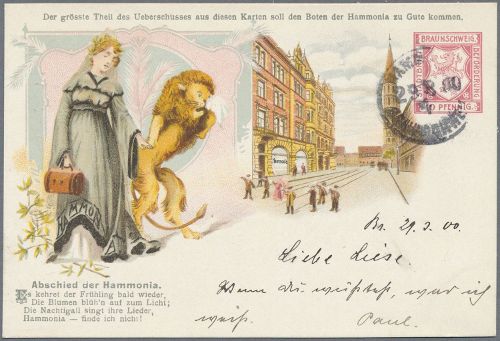 Der grösste Theil des Ueberschusses aus diesen Karten soll den Boten der Hammonia zu Gute kommen.
BRAUNSCHWEIG.
PFENNIG.
29.3.00
Hammonia
HAMMONIA
Br. 29.3.00.
Liebe Liese.
Wenn du wüßtest, was ich
weiß.
Paul.
Abschied der Hammonia.
Es kehret der Frühling bald wieder,
Die Blumen blüh'n auf zum Licht;
Die Nachtigall singt ihre Lieder,
Hammonia — finde ich nicht!